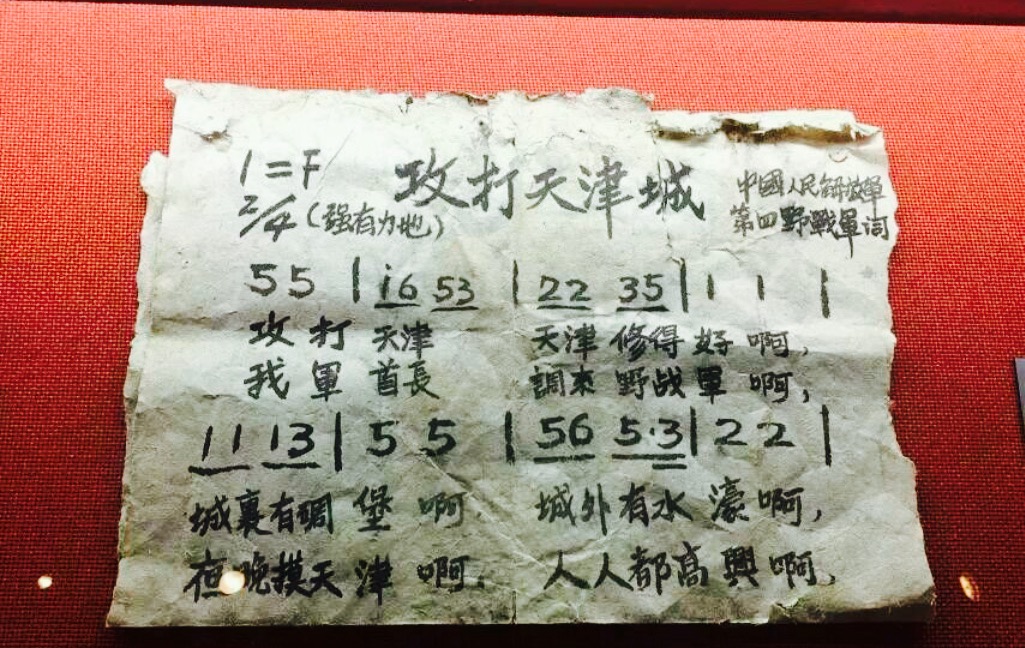 1=F
攻打天津城
中國人民解放軍
2/4 (强有力地)
第四野戰軍词
55 | i6 53 | 22 35 | 1 1 |
攻打 天津 天津 修得 好 啊,
我軍 首長 調来 野战 軍 啊,
11 13 | 5 5 | 56 5·3 | 2 2 |
城裏有碉 堡 啊, 城外有水 濠啊,
夜晚摸天 津 啊, 人人都高 興啊,